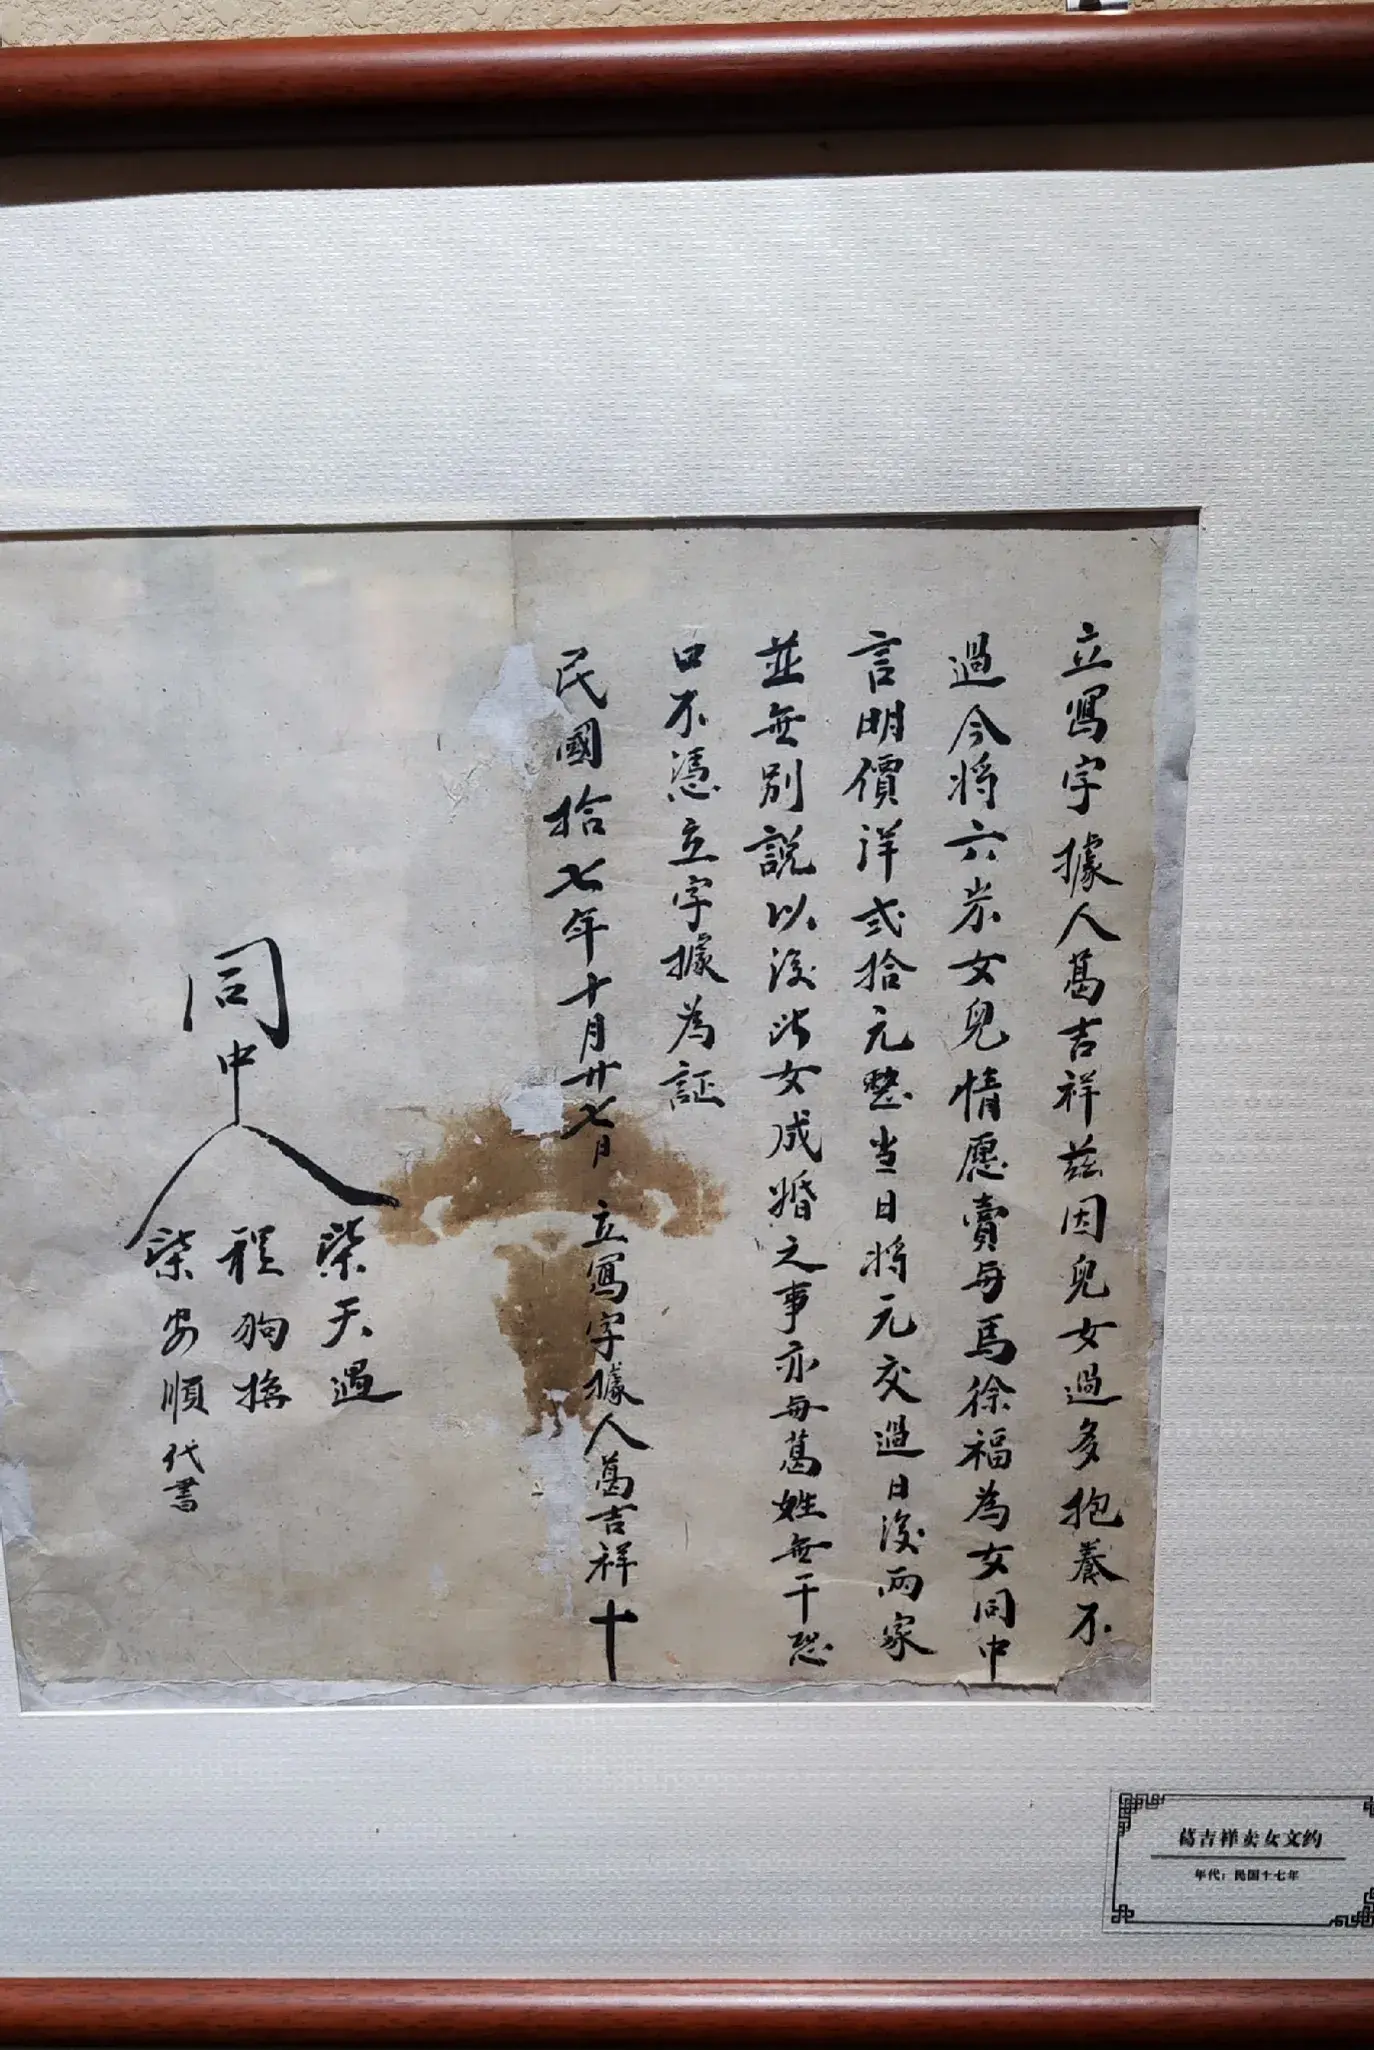 立寫字據人葛吉祥兹因兒女過多抱養不
過今将六岁女兒情愿賣与馬徐福為女同中
言明價洋弍拾元整当日将元交過日後两家
並無别説以後此女成婚之事亦与葛姓無干恐
口不憑立字據為証
民國拾七年十月廿七日 立寫字據人葛吉祥十
同中人
柴天過
程狗
柴安順代書
葛吉祥卖女文约
年代：民国十七年